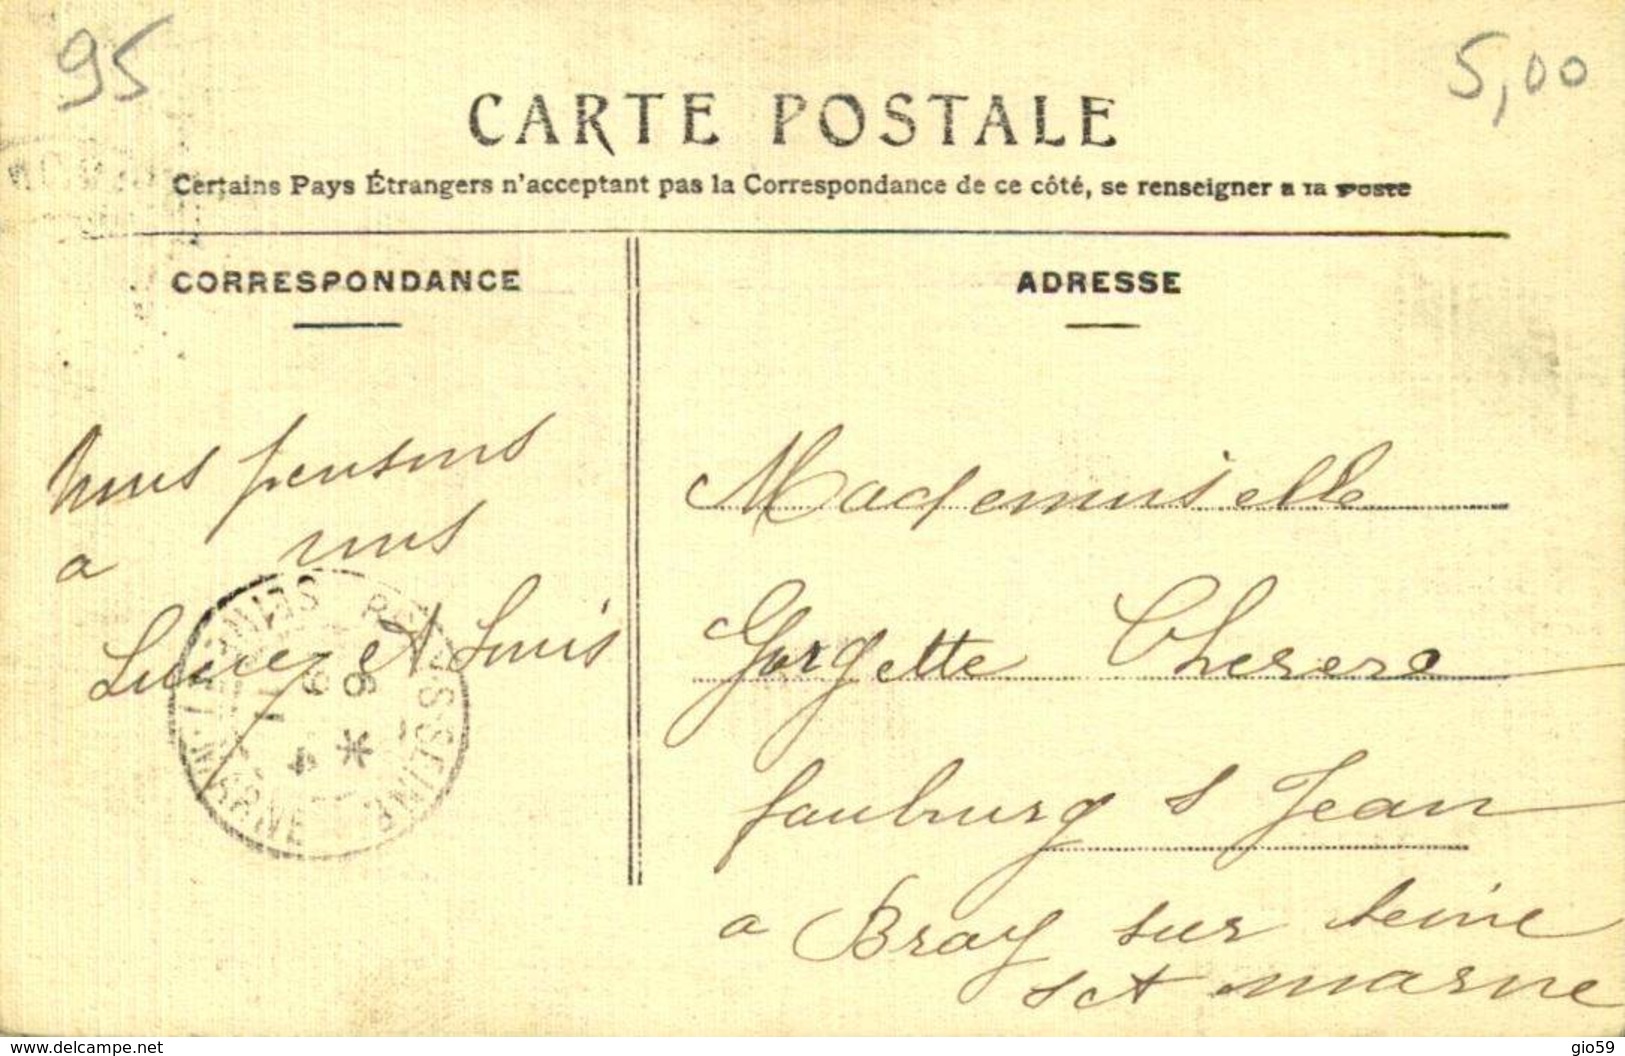 95
5,00
CARTE POSTALE
Certains Pays Étrangers n'acceptant pas la Correspondance de ce côté, se renseigner à la poste
CORRESPONDANCE
ADRESSE
nous pensons
a vous
et Louis
SEINE-ET-MARNE
S-SEINE
Mademoiselle
Gorgette
faubourg s Jean
a Bray sur seine
s et marne
www.delcampe.net
gio59